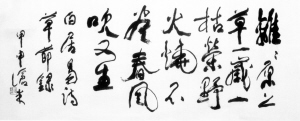 離離原上
草一歲一
枯榮野
火燒不
盡春風
吹又生
白居易詩
草節錄
甲申